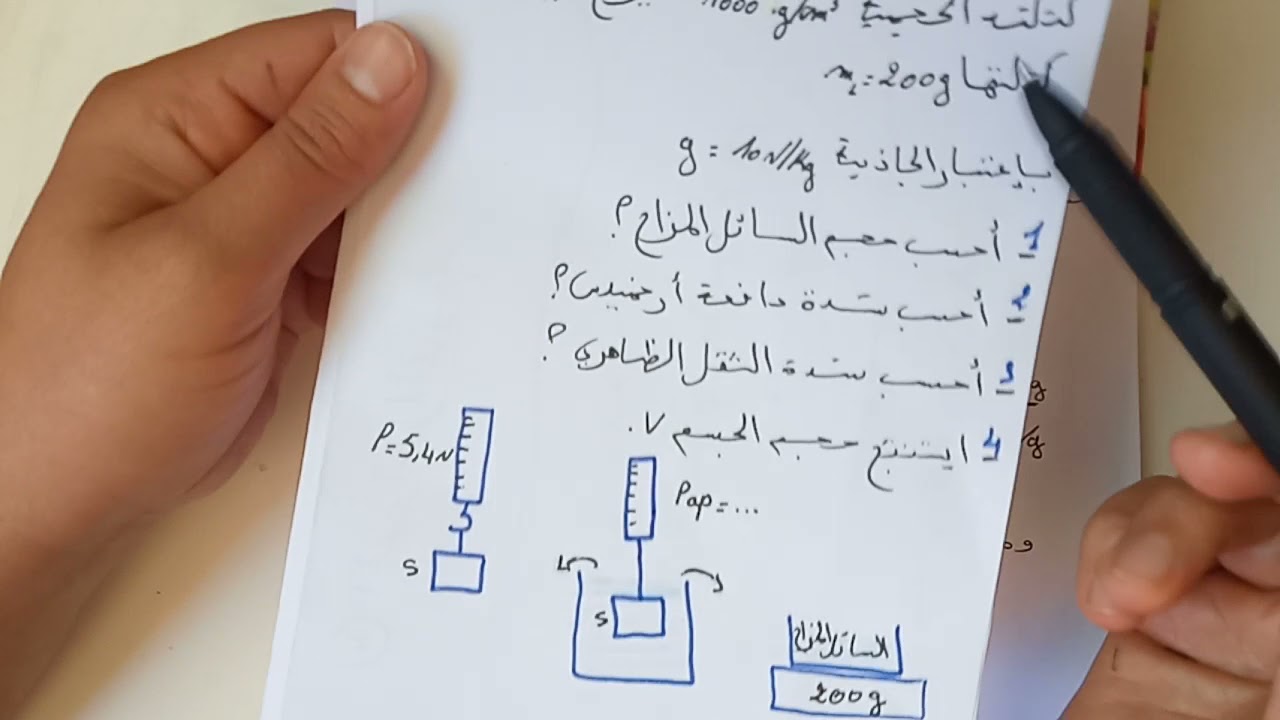 كتلته الحجمية 1000 g/cm³
كتلتها m₁=200g
بإعتبار الجاذبية g = 10N/Kg
1 أحسب حجم السائل المزاح ؟
2 أحسب شدة دافعة أرخميدس ؟
3 أحسب شدة الثقل الظاهري ؟
4 استنتج حجم الجسم V.
P=5,4N
S
Pap=...
S
السائل المزاح
200g
g
/g